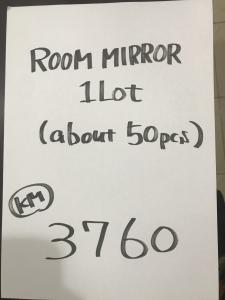 ROOM MIRROR
1Lot
(about 50pcs)
KM
3760